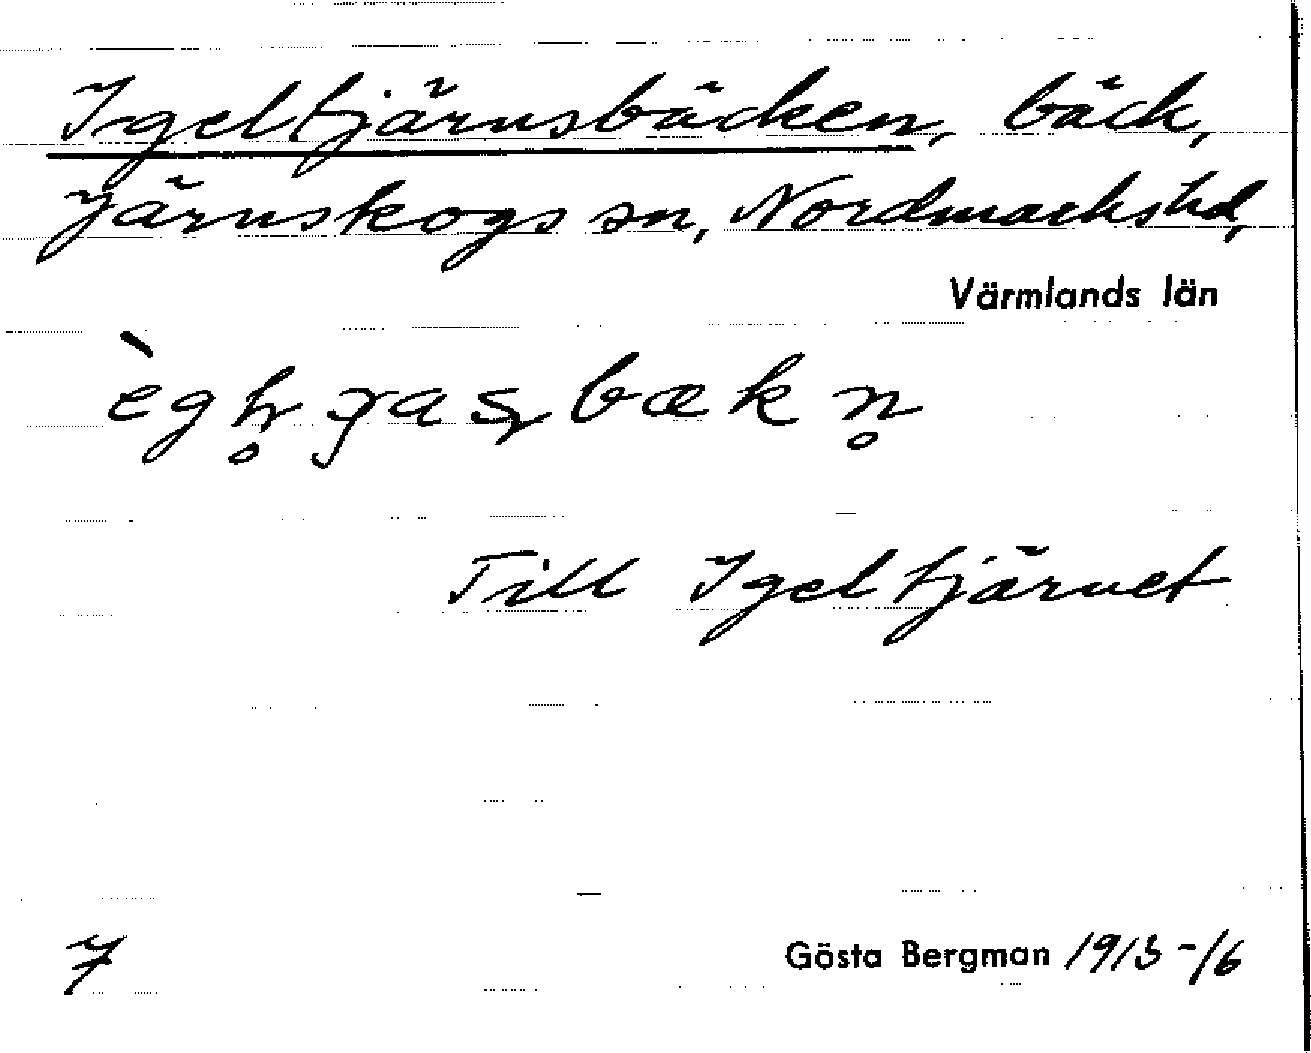 Igeltjärnsbäcken, bäck,
Järnskogs sn, Nordmarks hd,
Värmlands län
Till Igeltjärnet
7
Gösta Bergman 1913-16